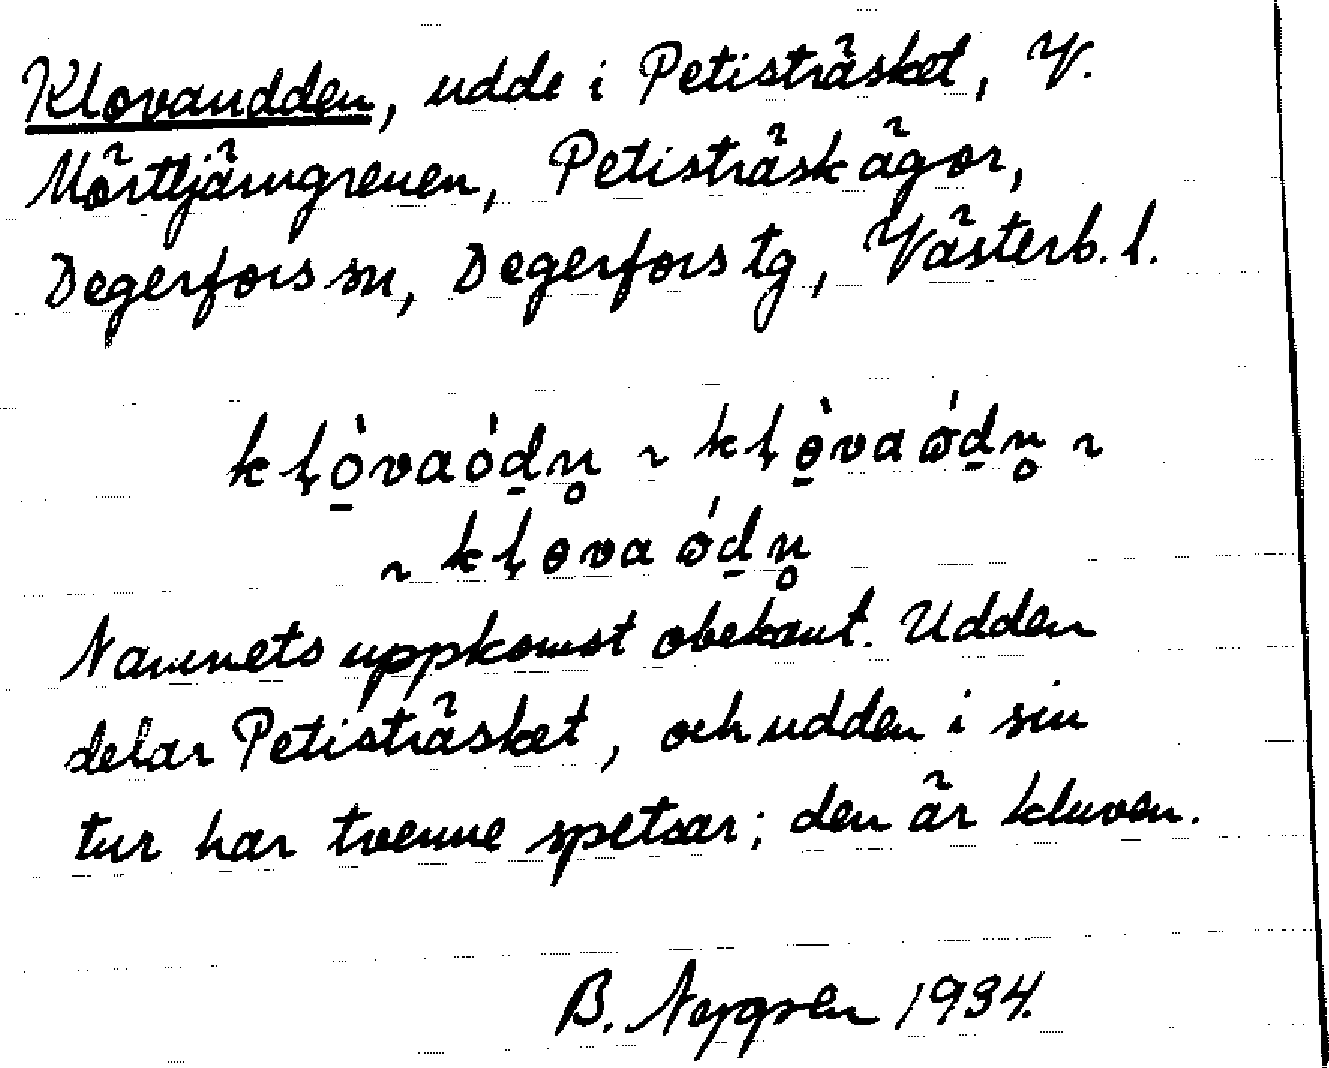 Klovaudden, udde i Petisträsket, V.
Mörttjärngrenen, Petisträsk ägor,
Degerfors sn, Degerfors tg, Västerb. l.
kḷò̱vaód̲n̥ ~ kḷɵ̱̀vaɷ́d̲n̥ ~
~ kḷɵvaɷ́d̲n̥
Namnets uppkomst obekant. Udden
delar Petisträsket, och udden i sin
tur har tvenne spetsar; den är kluven.
B. Nygren 1934.